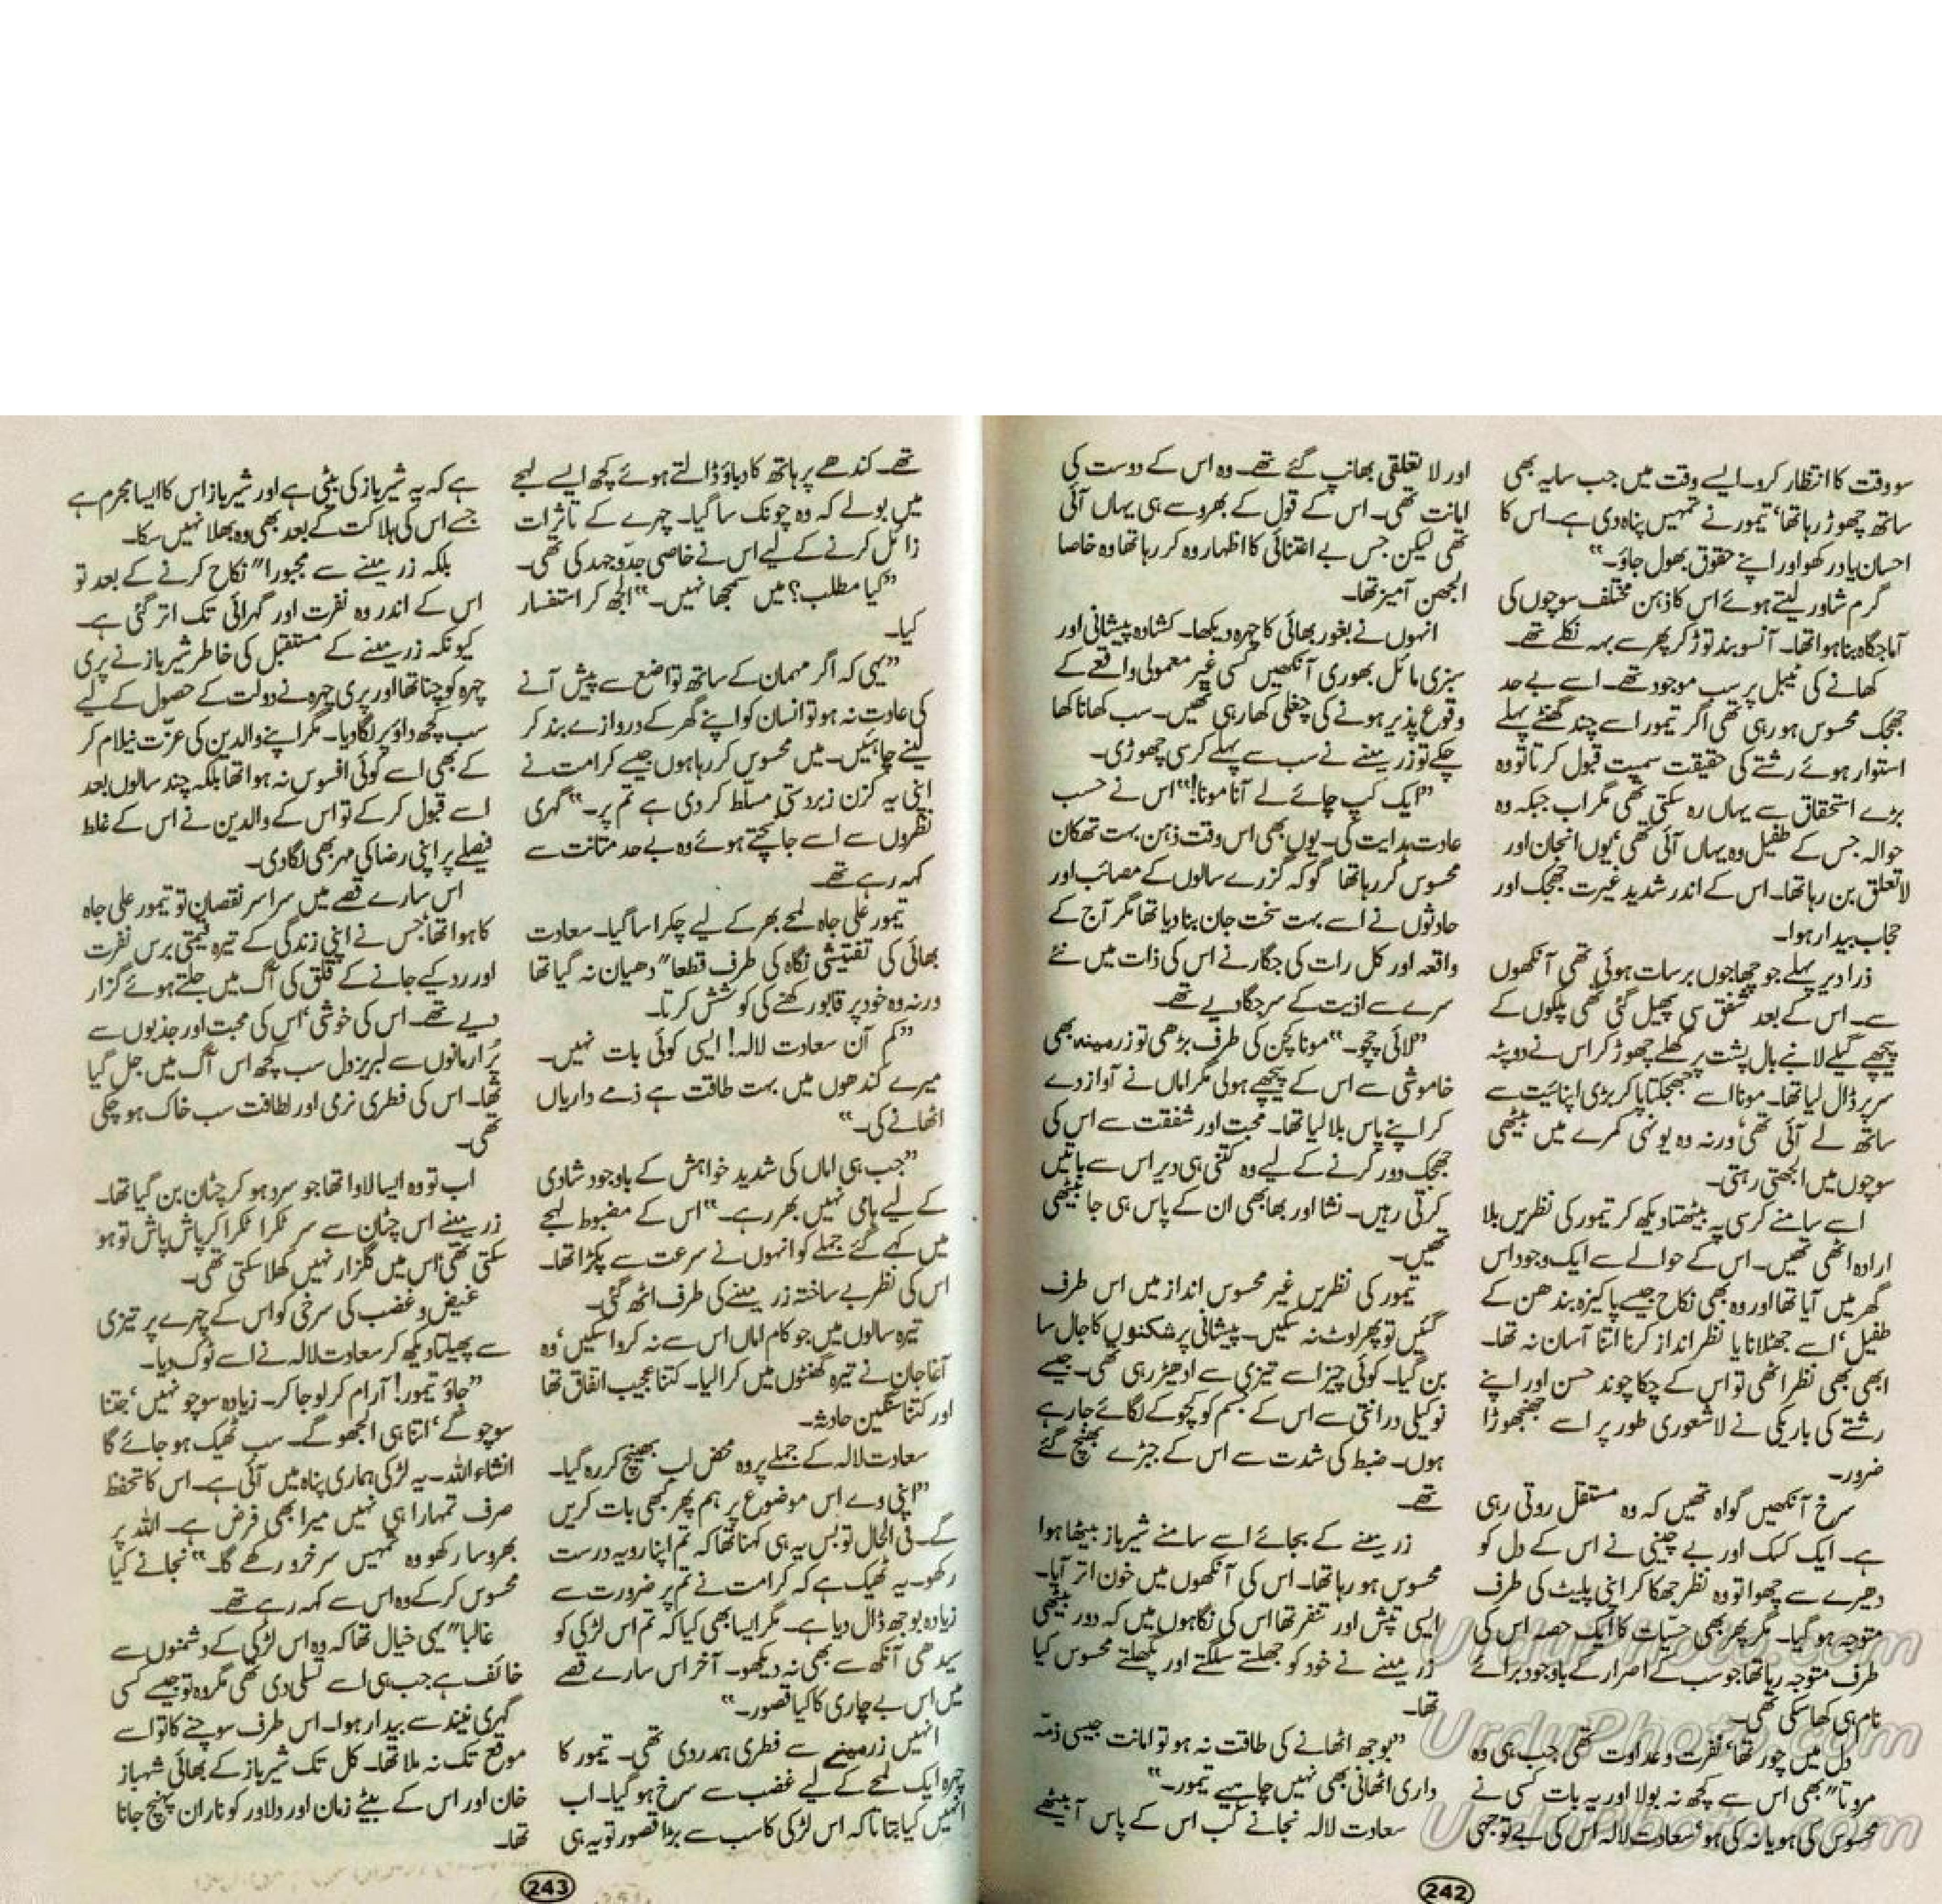 سو وقت کا انتظار کرو۔ ایسے وقت میں جب سایہ بھی
ساتھ چھوڑ رہا تھا، تیمور نے تمہیں پناہ دی ہے۔ اس کا
احسان یاد رکھو اور اپنے حقوق بھول جاؤ۔"
گرم شاور لیتے ہوئے اس کا ذہن مختلف سوچوں کی
آماجگاہ بنا ہوا تھا۔ آنسو بند توڑ کر پھر سے بہہ نکلے تھے۔
کھانے کی ٹیبل پر سب موجود تھے۔ اسے بے حد
جھجک محسوس ہو رہی تھی اگر تیمور اسے چند گھنٹے پہلے
استوار ہوئے رشتے کی حقیقت سمیت قبول کرتا تو وہ
بڑے استحقاق سے یہاں رہ سکتی تھی مگر اب جبکہ وہ
حوالہ جس کے طفیل وہ یہاں آئی تھی، یوں انجان اور
لا تعلق بن رہا تھا۔ اس کے اندر شدید غیرت جھجک اور
حجاب بیدار ہوا۔
ذرا دیر پہلے جو چھاجوں برسات ہوئی تھی آنکھوں
سے۔ اس کے بعد شفق سی پھیل گئی تھی پلکوں کے
پیچھے گیلے لانبے بال پشت پر کھلے چھوڑ کر اس نے دوپٹہ
سر پر ڈال لیا تھا۔ مونا اسے جھجکتا پا کر بڑی اپنائیت سے
ساتھ لے آئی تھی، ورنہ وہ یونہی کمرے میں بیٹھی
سوچوں میں الجھتی رہتی۔
اسے سامنے کرسی پہ بیٹھتا دیکھ کر تیمور کی نظریں بلا
ارادہ اٹھی تھیں۔ اس کے حوالے سے ایک وجود اس
گھر میں آیا تھا اور وہ بھی نکاح جیسے پاکیزہ بندھن کے
طفیل، اسے جھٹلانا یا نظر انداز کرنا اتنا آسان نہ تھا۔
ابھی بھی نظر اٹھی تو اس کے چکا چوند حسن اور اپنے
رشتے کی باریکی نے لاشعوری طور پر اسے جھنجھوڑا
ضرور۔
سرخ آنکھیں گواہ تھیں کہ وہ مستقل روتی رہی
ہے۔ ایک کسک اور بے چینی نے اس کے دل کو
دھیرے سے چھوا تو وہ نظر جھکا کر اپنی پلیٹ کی طرف
متوجہ ہو گیا۔ مگر پھر بھی حسیات کا ایک حصہ اس کی
طرف متوجہ رہا تھا جو سب کے اصرار کے باوجود برائے
نام ہی کھا سکی تھی۔
دل میں چور تھا، نفرت و عداوت تھی جب ہی وہ
مروتا" بھی اس سے کچھ نہ بولا اور یہ بات کسی نے
محسوس کی ہو یا نہ کی ہو، سعادت لالہ اس کی بے توجہی
اور لا تعلقی بھانپ گئے تھے۔ وہ اس کے دوست کی
امانت تھی۔ اس کے قول کے بھروسے ہی یہاں آئی
تھی لیکن جس بے اعتنائی کا اظہار وہ کر رہا تھا وہ خاصا
الجھن آمیز تھا۔
انہوں نے بغور بھائی کا چہرہ دیکھا۔ کشادہ پیشانی اور
سبزی مائل بھوری آنکھیں کسی غیر معمولی واقعے کے
وقوع پذیر ہونے کی چغلی کھا رہی تھیں۔ سب کھانا کھا
چکے تو زرمینے نے سب سے پہلے کرسی چھوڑی۔
"ایک کپ چائے لے آنا مونا!" اس نے حسب
عادت ہدایت کی۔ یوں بھی اس وقت ذہن بہت تھکان
محسوس کر رہا تھا گو کہ گزرے سالوں کے مصائب اور
حادثوں نے اسے بہت سخت جان بنا دیا تھا مگر آج کے
واقعہ اور کل رات کی جگار نے اس کی ذات میں نئے
سرے سے اذیت کے سر جگا دیے تھے۔
"لائی چچو۔" مونا کچن کی طرف بڑھی تو زرمینہ بھی
خاموشی سے اس کے پیچھے ہولی مگر اماں نے آواز دے
کر اپنے پاس بلا لیا تھا۔ محبت اور شفقت سے اس کی
جھجک دور کرنے کے لیے وہ کتنی ہی دیر اس سے باتیں
کرتی رہیں۔ نشا اور بھابھی ان کے پاس ہی جا بیٹھی
تھیں۔
تیمور کی نظریں غیر محسوس انداز میں اس طرف
گئیں تو پھر لوٹ نہ سکیں۔ پیشانی پر شکنوں کا جال سا
بن گیا۔ کوئی چیز اسے تیزی سے ادھیڑ رہی تھی۔ جیسے
نوکیلی درانتی سے اس کے جسم کو کچوکے لگائے جا رہے
ہوں۔ ضبط کی شدت سے اس کے جبڑے بھنچ گئے
تھے۔
زرمینے کے بجائے اسے سامنے شیرباز بیٹھا ہوا
محسوس ہو رہا تھا۔ اس کی آنکھوں میں خون اتر آیا۔
ایسی تپش اور تنفر تھا اس کی نگاہوں میں کہ دور بیٹھی
زرمینے نے خود کو جھلستے سلگتے اور پگھلتے محسوس کیا
تھا۔
"بوجھ اٹھانے کی طاقت نہ ہو تو امانت جیسی ذمہ
داری اٹھانی بھی نہیں چاہیے تیمور۔"
سعادت لالہ نجانے کب اس کے پاس آ بیٹھے
242
تھے۔ کندھے پر ہاتھ کا دباؤ ڈالتے ہوئے کچھ ایسے لہجے
میں بولے کہ وہ چونک سا گیا۔ چہرے کے تاثرات
زائل کرنے کے لیے اس نے خاصی جدوجہد کی تھی۔
"کیا مطلب؟ میں سمجھا نہیں۔" الجھ کر استفسار
کیا۔
"یہی کہ اگر مہمان کے ساتھ تواضع سے پیش آنے
کی عادت نہ ہو تو انسان کو اپنے گھر کے دروازے بند کر
لینے چاہئیں۔ میں محسوس کر رہا ہوں جیسے کرامت نے
اپنی یہ کزن زبردستی مسلّط کر دی ہے تم پر۔" گہری
نظروں سے اسے جانچتے ہوئے وہ بے حد متانت سے
کہہ رہے تھے۔
تیمور علی جاہ لمحے بھر کے لیے چکرا سا گیا۔ سعادت
بھائی کی تفتیشی نگاہ کی طرف قطعا" دھیان نہ گیا تھا
ورنہ وہ خود پر قابو رکھنے کی کوشش کرتا۔
"کم آن سعادت لالہ! ایسی کوئی بات نہیں۔
میرے کندھوں میں بہت طاقت ہے ذمے داریاں
اٹھانے کی۔"
"جب ہی اماں کی شدید خواہش کے باوجود شادی
کے لیے ہامی نہیں بھر رہے۔" اس کے مضبوط لہجے
میں کہے گئے جملے کو انہوں نے سرعت سے پکڑا تھا۔
اس کی نظر بے ساختہ زرمینے کی طرف اٹھ گئی۔
تیرہ سالوں میں جو کام اماں اس سے نہ کروا سکیں، وہ
آغا جان نے تیرہ گھنٹوں میں کرا لیا۔ کتنا عجیب اتفاق تھا
اور کتنا سنگین حادثہ۔
سعادت لالہ کے جملے پر وہ محض لب بھینچ کر رہ گیا۔
"اپنی وے اس موضوع پر ہم پھر کبھی بات کریں
گے۔ فی الحال تو بس یہ ہی کہنا تھا کہ تم اپنا رویہ درست
رکھو۔ یہ ٹھیک ہے کہ کرامت نے تم پر ضرورت سے
زیادہ بوجھ ڈال دیا ہے۔ مگر ایسا بھی کیا کہ تم اس لڑکی کو
سیدھی آنکھ سے بھی نہ دیکھو۔ آخر اس سارے قصے
میں اس بے چاری کا کیا قصور۔"
انہیں زرمینے سے فطری ہمدردی تھی۔ تیمور کا
چہرہ ایک لمحے کے لیے غضب سے سرخ ہو گیا۔ اب
انہیں کیا بتاتا کہ اس لڑکی کا سب سے بڑا قصور تو یہ ہی
ہے کہ یہ شیرباز کی بیٹی ہے اور شیرباز اس کا ایسا مجرم ہے
جسے اس کی ہلاکت کے بعد بھی وہ بھلا نہیں سکا۔
بلکہ زرمینے سے مجبورا" نکاح کرنے کے بعد تو
اس کے اندر وہ نفرت اور گہرائی تک اتر گئی ہے۔
کیونکہ زرمینے کے مستقبل کی خاطر شیرباز نے پری
چہرہ کو چنا تھا اور پری چہرہ نے دولت کے حصول کے لیے
سب کچھ داؤ پر لگا دیا۔ مگر اپنے والدین کی عزت نیلام کر
کے بھی اسے کوئی افسوس نہ ہوا تھا بلکہ چند سالوں بعد
اسے قبول کر کے تو اس کے والدین نے اس کے غلط
فیصلے پر اپنی رضا کی مہر بھی لگا دی۔
اس سارے قصے میں سراسر نقصان تو تیمور علی جاہ
کا ہوا تھا، جس نے اپنی زندگی کے تیرہ قیمتی برس نفرت
اور رد کیے جانے کے قلق کی آگ میں جلتے ہوئے گزار
دیے تھے۔ اس کی خوشی، اس کی محبت اور جذبوں سے
پُر ارمانوں سے لبریز دل سب کچھ اس آگ میں جل گیا
تھا۔ اس کی فطری نرمی اور لطافت سب خاک ہو چکی
تھی۔
اب تو وہ ایسا لاوا تھا جو سرد ہو کر چٹان بن گیا تھا۔
زرمینے اس چٹان سے سر ٹکرا ٹکرا کر پاش پاش تو ہو
سکتی تھی، اس میں گلزار نہیں کھلا سکتی تھی۔
غیض و غضب کی سرخی کو اس کے چہرے پر تیزی
سے پھیلتا دیکھ کر سعادت لالہ نے اسے ٹوک دیا۔
"جاؤ تیمور! آرام کر لو جا کر۔ زیادہ سوچو نہیں، جتنا
سوچو گے، اتنا ہی الجھو گے۔ سب ٹھیک ہو جائے گا
انشاء اللہ۔ یہ لڑکی ہماری پناہ میں آئی ہے۔ اس کا تحفظ
صرف تمہارا ہی نہیں میرا بھی فرض ہے۔ اللہ پر
بھروسا رکھو وہ تمہیں سرخرو رکھے گا۔" نجانے کیا
محسوس کر کے وہ اس سے کہہ رہے تھے۔
غالبا" یہی خیال تھا کہ وہ اس لڑکی کے دشمنوں سے
خائف ہے جب ہی اسے تسلی دی تھی مگر وہ تو جیسے کسی
گہری نیند سے بیدار ہوا۔ اس طرف سوچنے کا تو اسے
موقع تک نہ ملا تھا۔ کل تک شیرباز کے بھائی شہباز
خان اور اس کے بیٹے زمان اور دلاور کو ناران پہنچ جانا
تھا۔
243
UrduPhoto.com
UrduPhoto.com
UrduPhoto.com